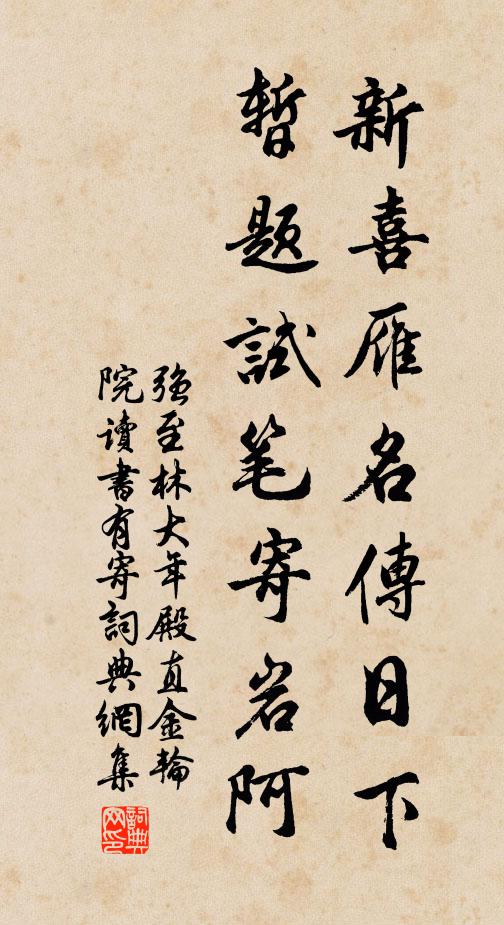 新喜雁名傳日下
暫题試笔寄岩阿
强至林大年殿直金輪
院讀書有寄詞典網集
詞典网印